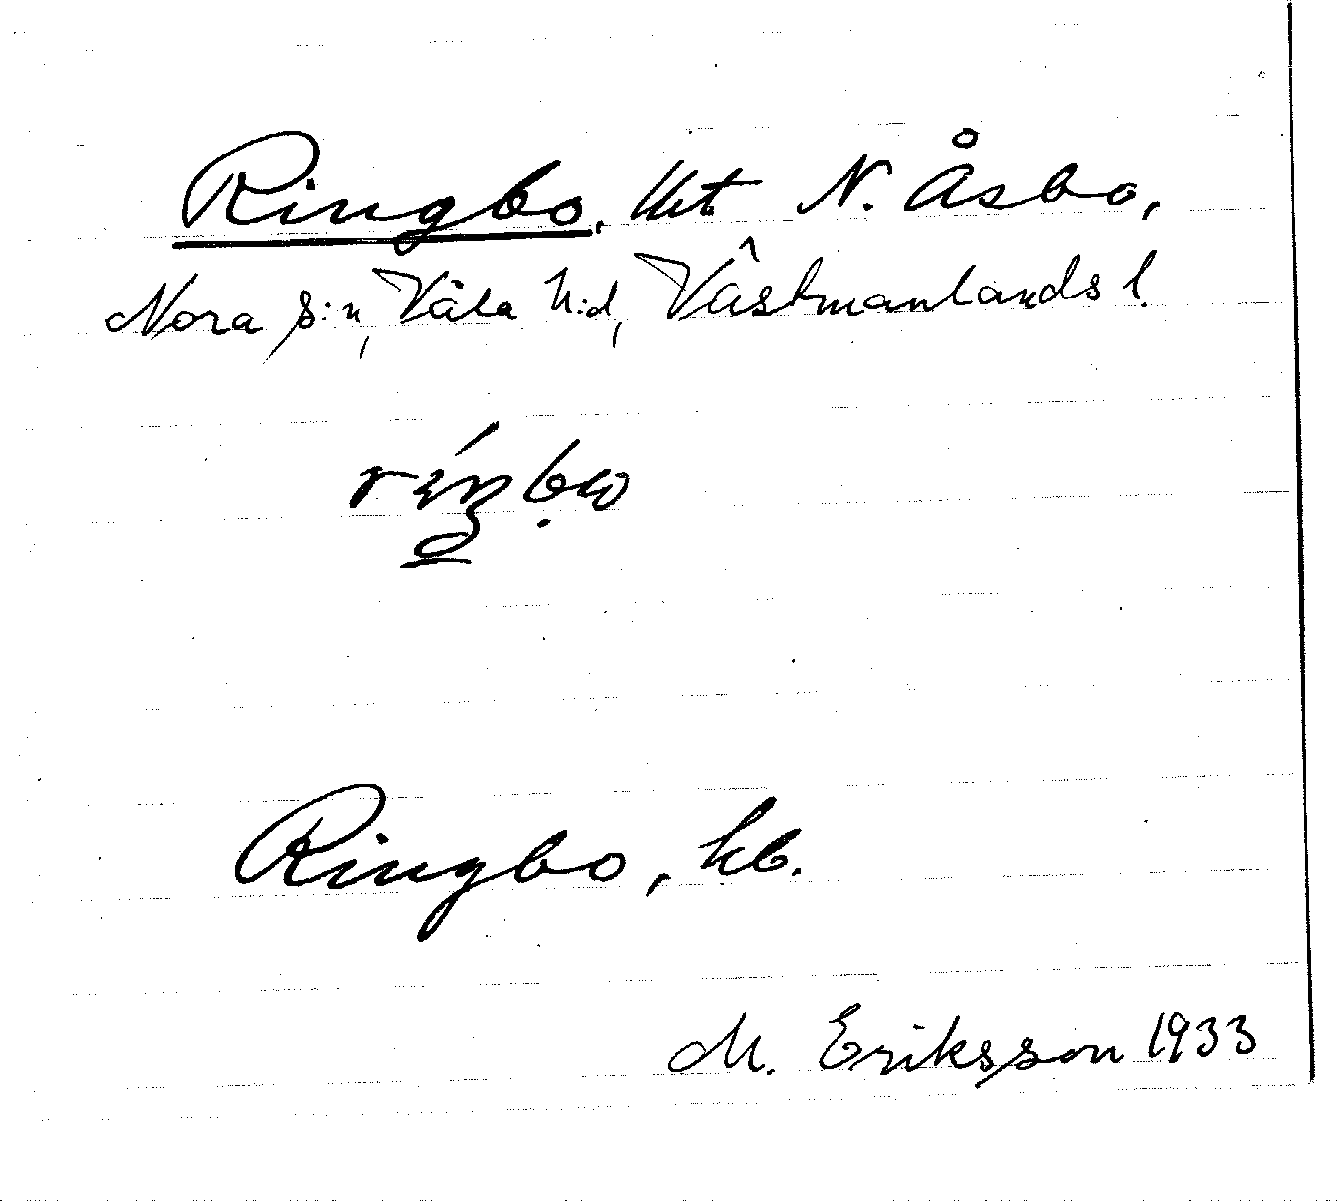 Ringbo, tkt N. Åsbo,
Nora s:n, Våla h:d, Västmanlands l.
Ringbo, hb.
M. Eriksson 1933